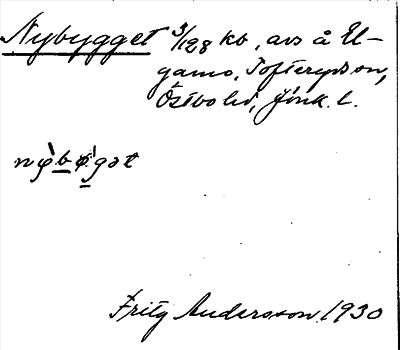 Nybygget 3/128 kb, avs å El-
gamo, Tofteryds sn,
Östbo hd, Jönk. l.
nỳbǿgət
Fritz Andersson. 1930